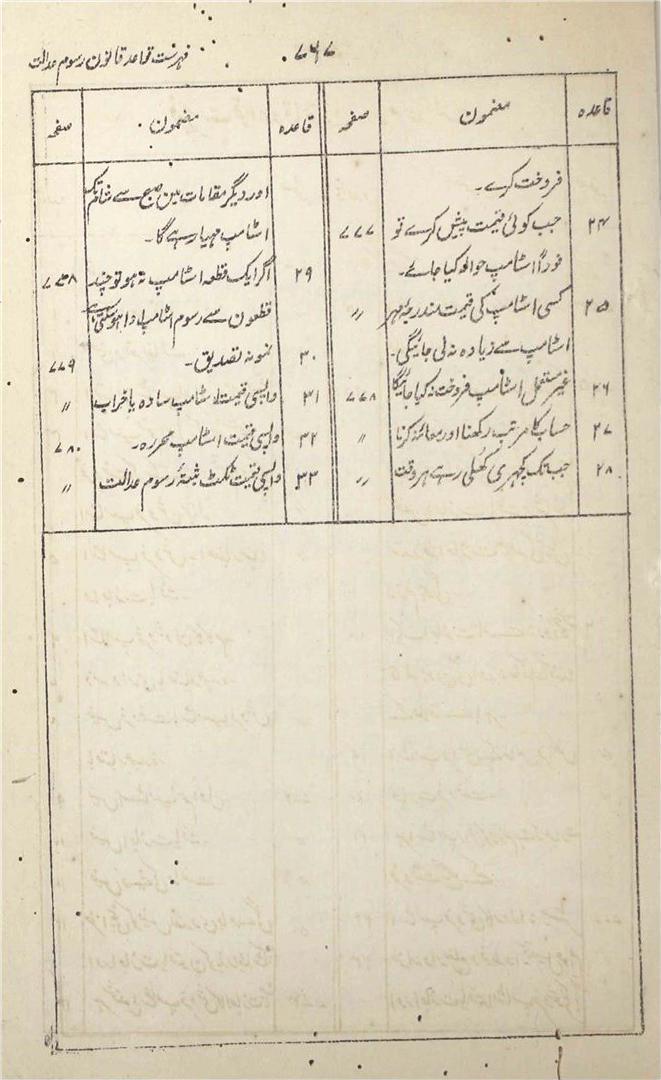 ۷۶۷
فہرست قواعد قانون رسوم عدالت
قاعدہ مضمون صفحہ
فروخت کرے۔
۲۴ جب کوئی قیمت پیش کرے تو ۷۷۷
فوراً اسٹامپ حوالہ کیا جائے۔
۲۵ کسی اسٹامپ کی قیمت مندرجۂ مہر 〃
اسٹامپ سے زیادہ نہ لی جائیگی۔
۲۶ غیر مستعمل اسٹامپ فروخت نہ کیا جائیگا ۷۷۸
۲۷ حساب کا مرتب رکھنا اور معائنہ کرنا 〃
۲۸ جب تک کچہری کھلی رہے ہر وقت 〃
قاعدہ مضمون صفحہ
اور دیگر مقامات مین صبح سے شام تک
اسٹامپ مہیا رہے گا۔
۲۹ اگر ایک قطعہ اسٹامپ نہ ہو تو چند ۷۷۸
قطعون سے رسوم اسٹامپ ادا ہو سکتی ہے
۳۰ نمونہ تصدیق۔ ۷۷۹
۳۱ واپسی قیمت اسٹامپ سادہ یا خراب 〃
۳۲ واپسی قیمت اسٹامپ محررہ۔ ۷۸۰
۳۳ واپسی قیمت ٹکٹ رسوم عدالت 〃